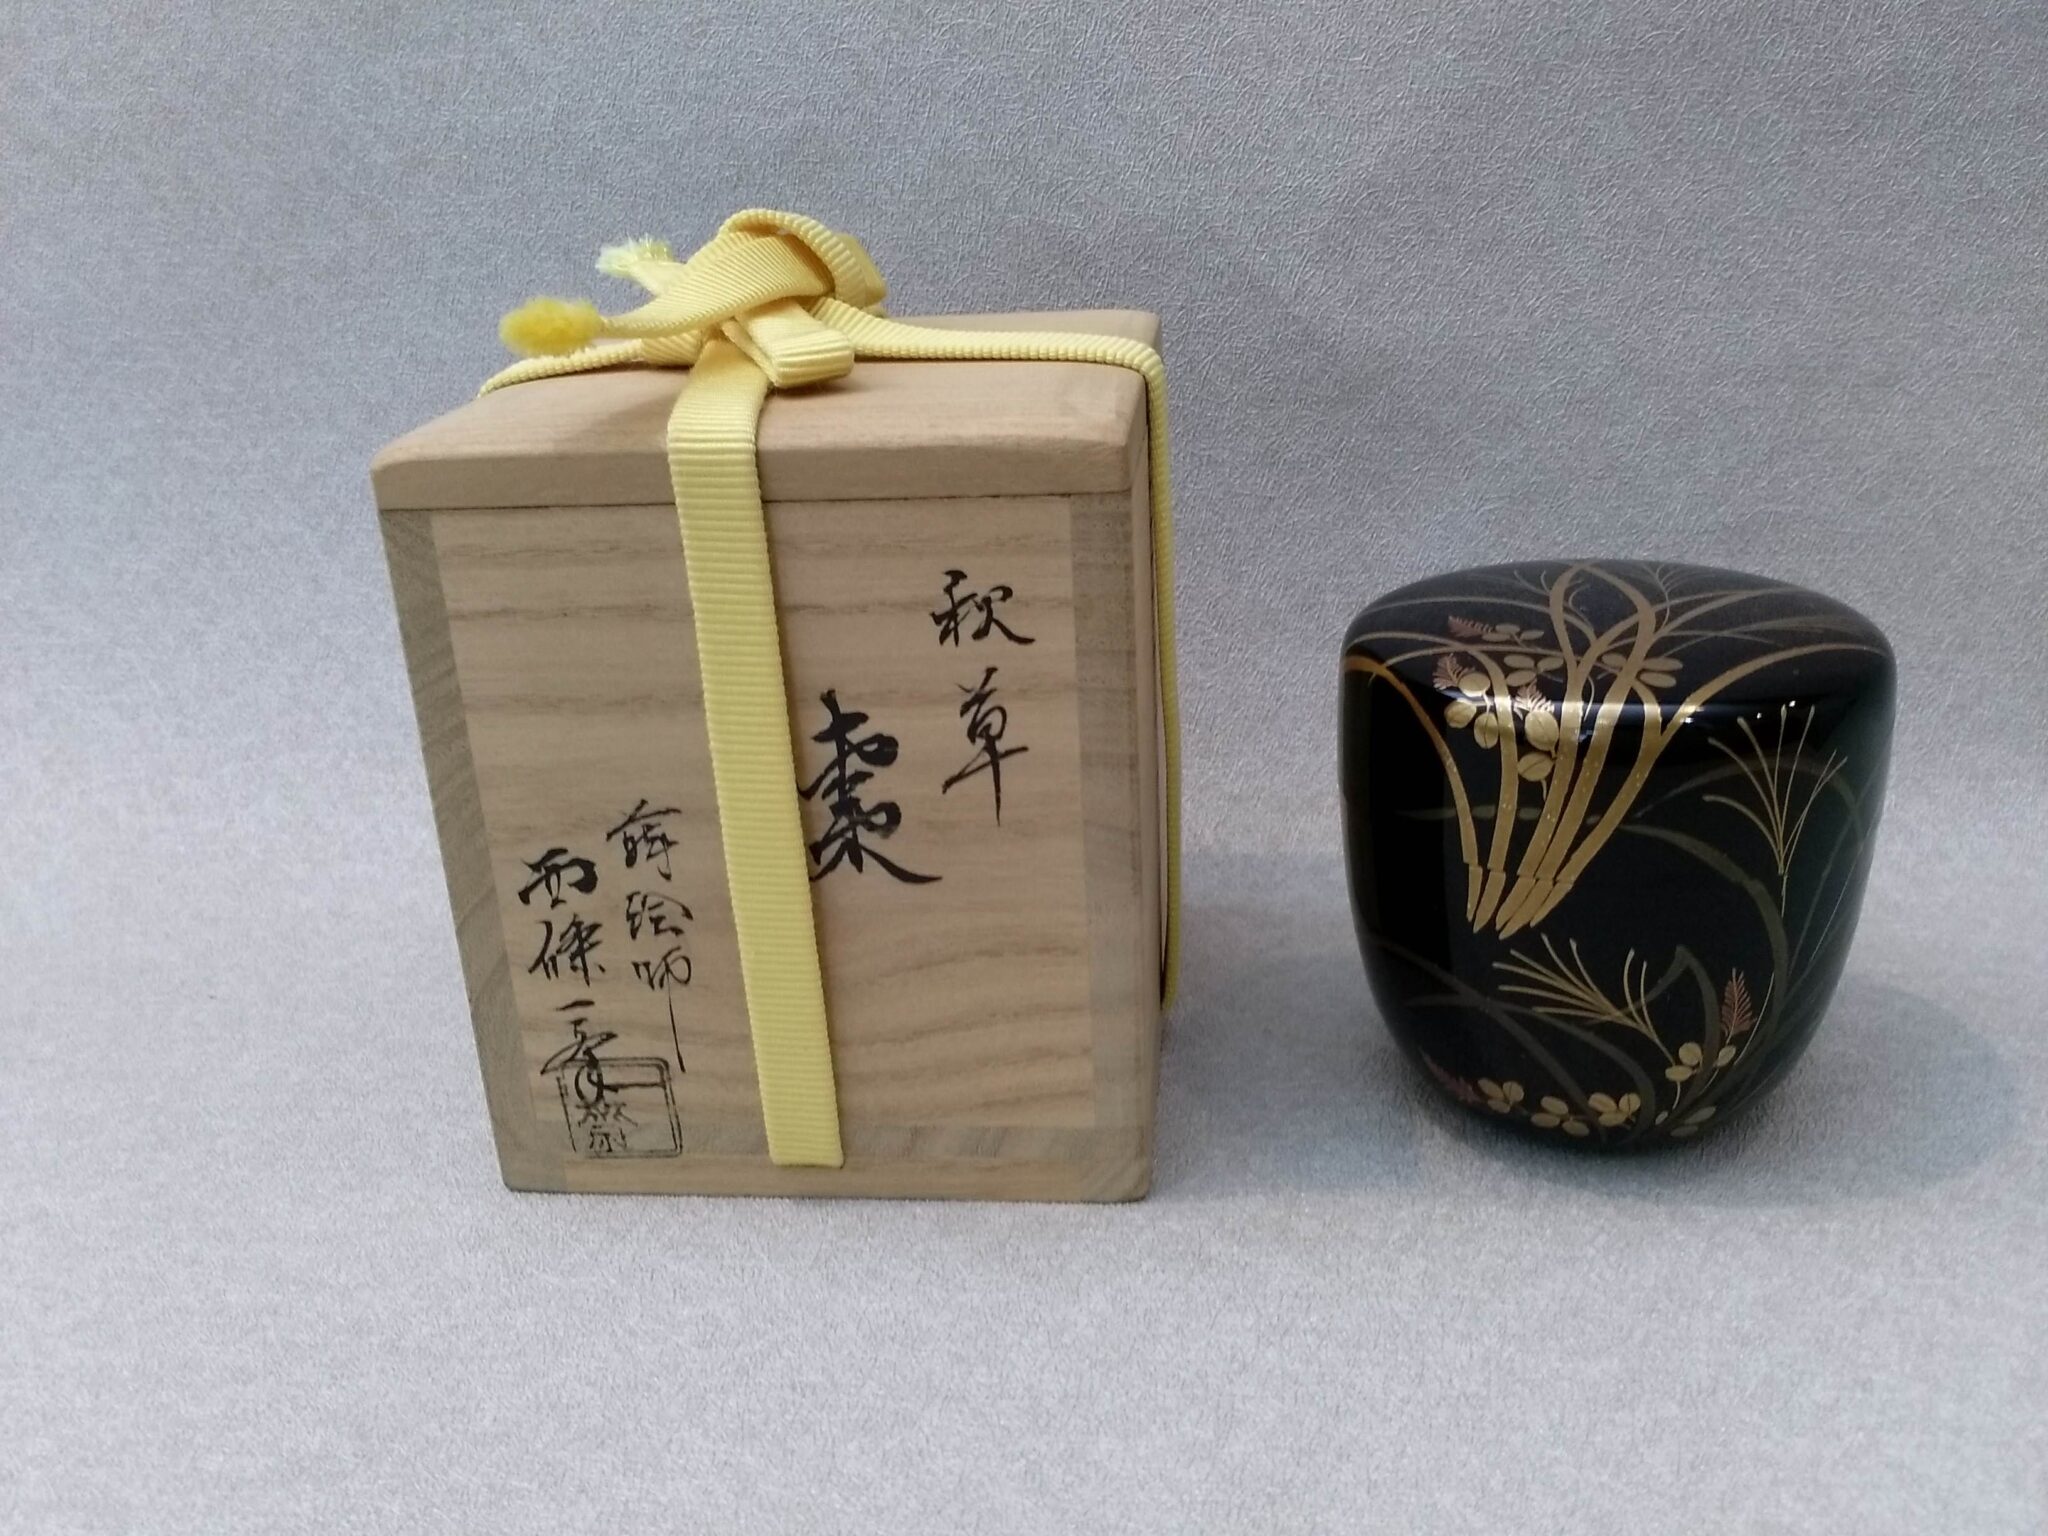 秋草
棗
蒔絵師
西條一斎